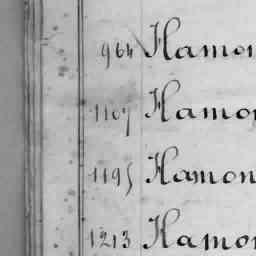 964 Hamon
1107 Hamon
1195 Hamon
1213 Hamon